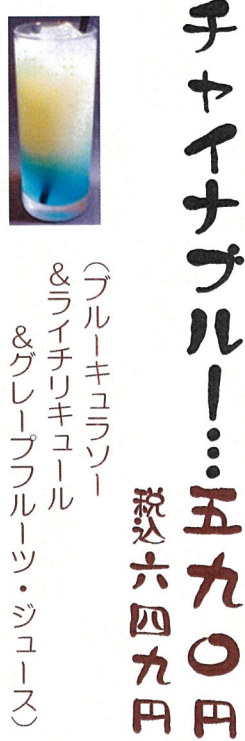 チャイナブルー…五九〇円
税込六四九円
(ブルーキュラソー
&ライチリキュール
&グレープフルーツ・ジュース)